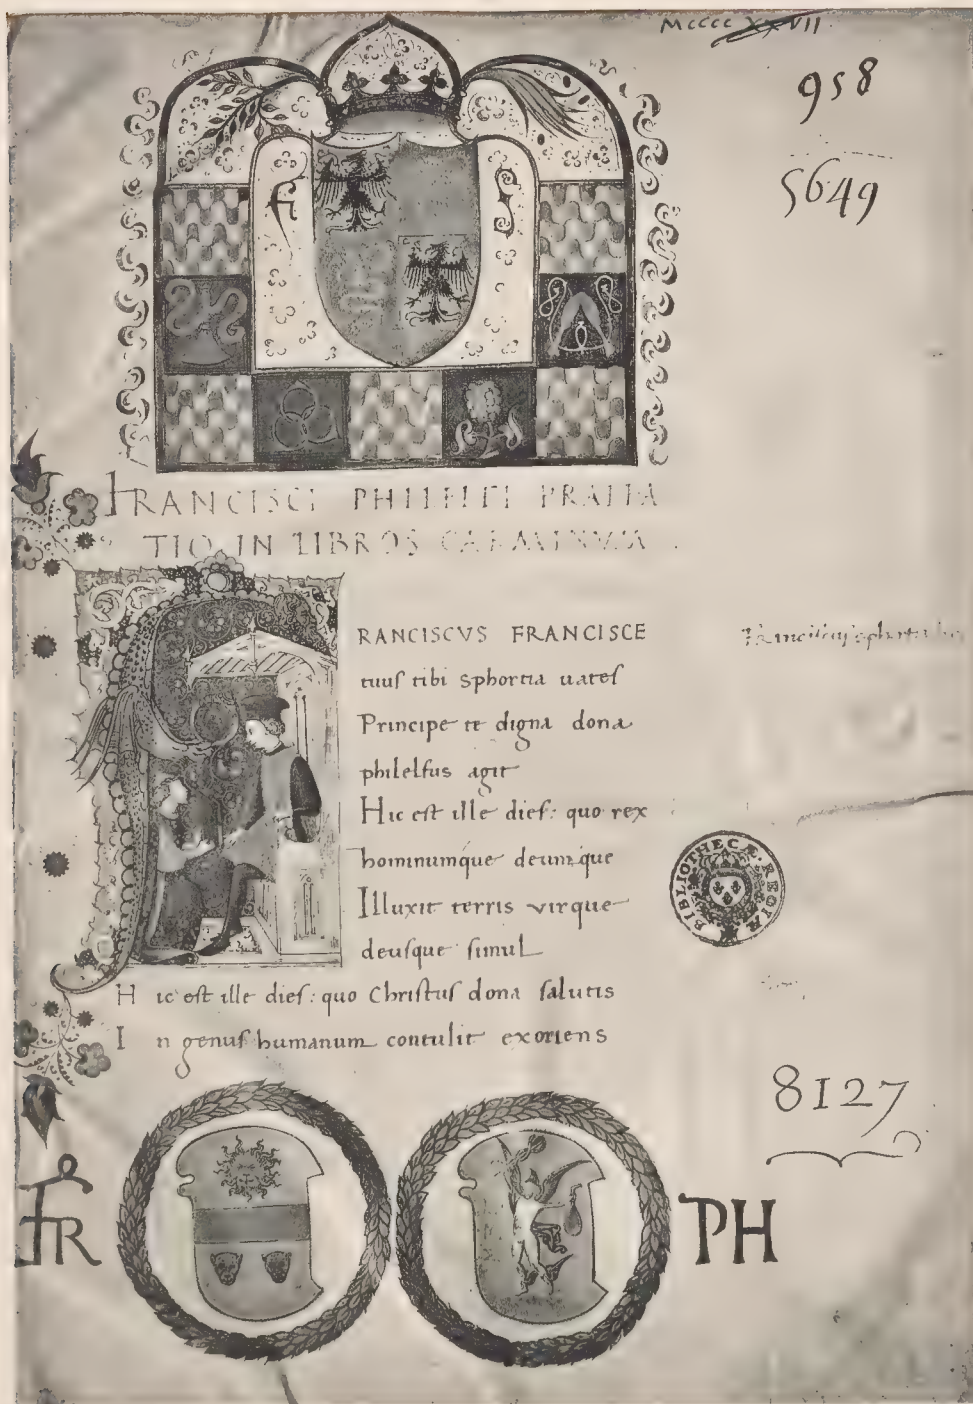 Mcccc xxvii
958
5649
Fr
FRANCISCI PHILELFI PRAEFA
TIO IN LIBROS CARMINVM .
RANCISCVS FRANCISCE
tuus tibi sphortia uates
Principe te digna dona
philelfus agit
Hic est ille dies: quo rex
hominumque deumque
Illuxit terris virque
deusque simul
Hic est ille dies: quo Christus dona salutis
In genus humanum contulit exoriens
Franciscus sphortia
BIBLIOTHECÆ REGIÆ
8127
FR
PH